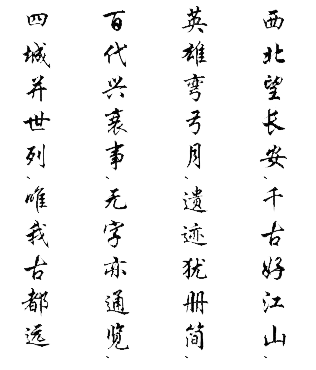 西北望长安、千古好江山、
英雄弯弓月、遗迹犹册简、
百代兴衰事、无字亦通览、
四城并世列、唯我古都远、